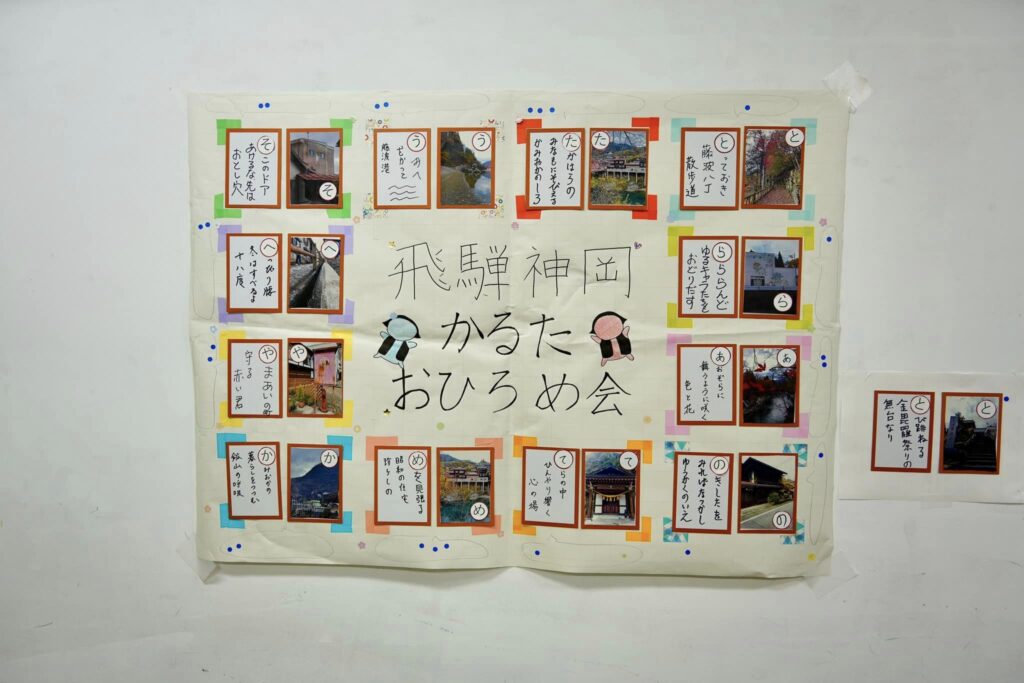 そこのドア
あけるな先は
おとし穴
そ
う
藤波港
う
たかはらの
みなもにそびえる
かみおかのしろ
た
とっておき
藤波八丁
散歩道
と
へっぴり腰
冬はすべるよ
十八度
へ
飛騨神岡
かるた
おひろめ会
らららんど
ゆるキャラたちと
おどりだす
ら
やまあいの町
守る
赤い君
や
あおぞらに
舞うように咲く
色と花
あ
かみおかの
暮らしをつつむ
鉱山の呼吸
か
めを見張る
昭和の住宅
め
てらの中
ひんやり響く
心の場
て
のきしたを
みればなつかし
ゆうかくのいえ
の
とび跳ねる
金毘羅祭りの
舞台なり
と